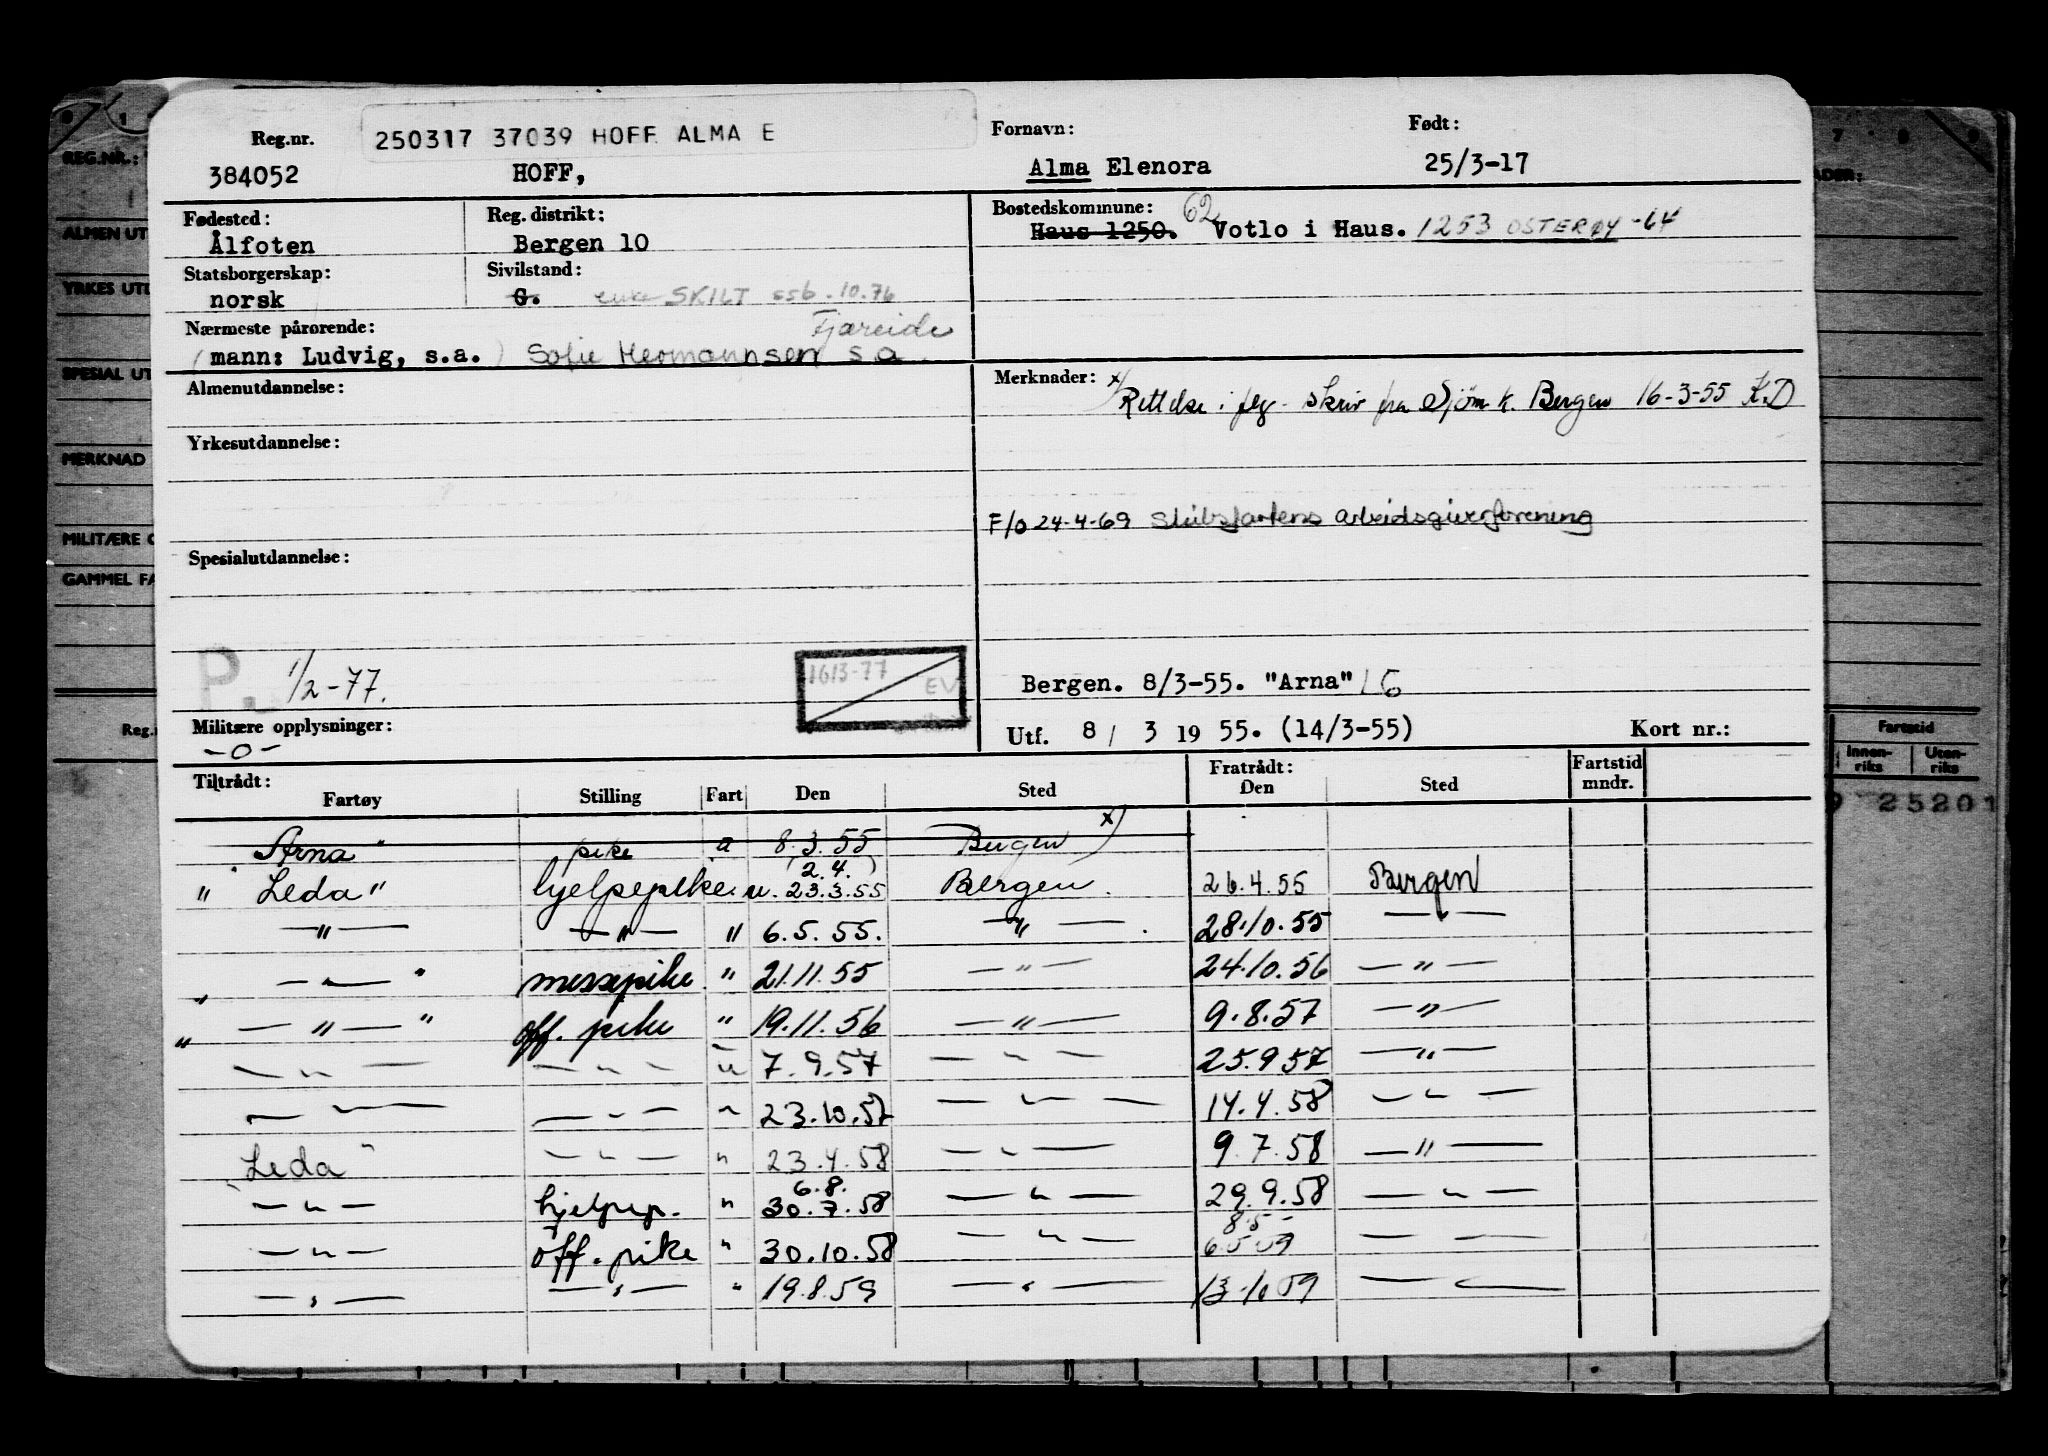 Reg.nr. 250317 37039 HOFF ALMA E Fornavn: Født:
384052 HOFF, Alma Elenora 25/3-17
Fødested: Reg. distrikt: Bostedskommune: 62
Ålfoten Bergen 10 Haus 1250. Votlo i Haus. 1253 OSTERØY -64
Statsborgerskap: Sivilstand:
norsk G. enke SKILT ssb. 10.76
Nærmeste pårørende: Fjæreide
(mann: Ludvig, s.a.) Sofie Hermannsen s a.
Almenutdannelse: Merknader: x)
Rettelse i flg. skriv fra Sjøm k. Bergen 16-3-55 K.D
Yrkesutdannelse:
F/o 24-4-69 Skibsfartens arbeidsgiverforening
Spesialutdannelse:
P. 1/2-77. 1613-77 EV
Bergen. 8/3-55. "Arna"
Militære opplysninger: Utf. 8/ 3 19 55. (14/3-55) Kort nr.:
-o-
Tiltrådt: Fratrådt: Fartstid
Fartøy Stilling Fart Den Sted Den Sted mndr.
"Arna" pike a 8.3.55 Bergen x)
(2.4.)
"Leda" hjelpepike. u. 23.3.55 Bergen. 26.4.55 Bergen
—"— —"— " 6.5.55. —"— 28.10.55 —"—
" —"— " messepike " 21.11.55 —"— 24.10.56 —"—
" —"— " off. pike " 19.11.56 —"— 9.8.57 —"—
—"— —"— u 7.9.57 —"— 25.9.57 —"—
—"— —"— " 23.10.57 —"— 14.4.58 —"—
"Leda" —"— " 23.4.58 —"— 9.7.58 —"—
6.8.
—"— hjelpep. " 30.7.58 —"— 29.9.58 —"—
8.5-
—"— off. pike " 30.10.58 —"— 6.5.59 — —
—"— —"— " 19.8.59 —"— 13-10 59 — —
REG.NR.:
ALMEN UT
YRKES UTD
SPESIAL UT
MERKNAD
MILITÆRE O
GAMMEL FA
Reg.n
7 8 9
ADER:
Fartstid
Innen-riks Uten-riks
9 25201